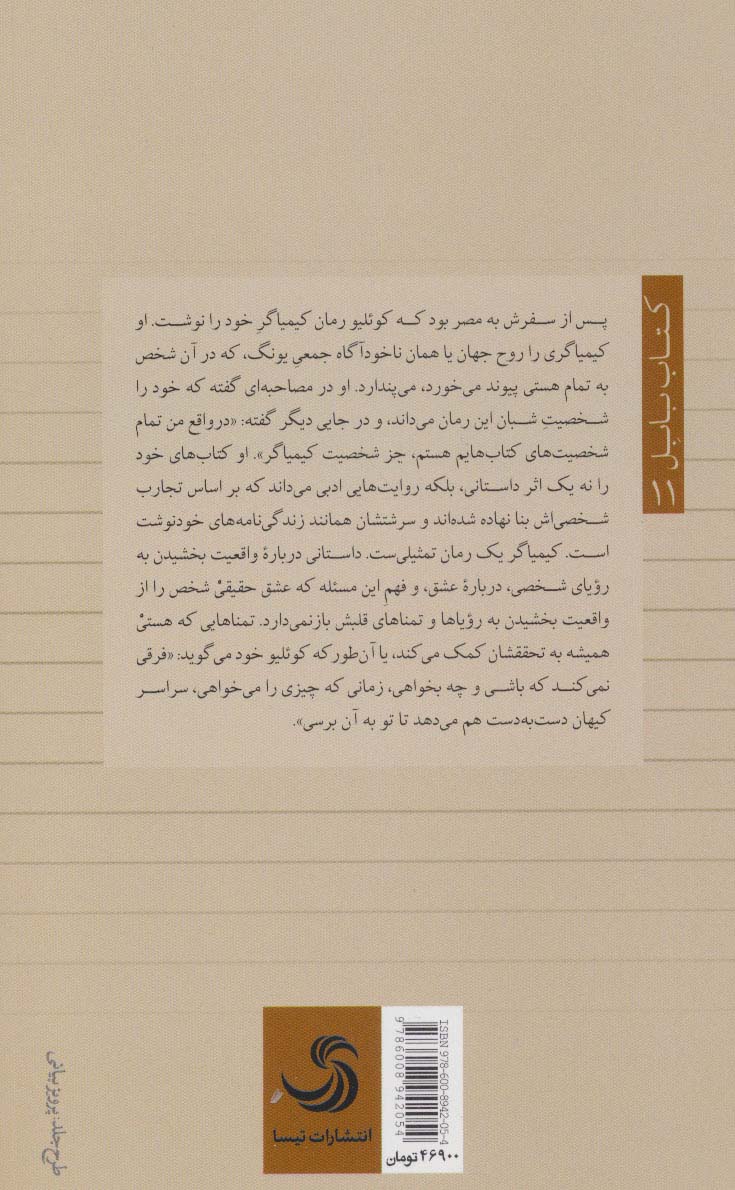 کتاب بابل ۱۱
پس از سفرش به مصر بود که کوئلیو رمان کیمیاگرِ خود را نوشت. او
کیمیاگری را روح جهان یا همان ناخودآگاه جمعیِ یونگ، که در آن شخص
به تمام هستی پیوند می‌خورد، می‌پندارد. او در مصاحبه‌ای گفته که خود را
شخصیتِ شبان این رمان می‌داند، و در جایی دیگر گفته: «درواقع من تمام
شخصیت‌های کتاب‌هایم هستم، جز شخصیت کیمیاگر». او کتاب‌های خود
را نه یک اثر داستانی، بلکه روایت‌هایی ادبی می‌داند که بر اساس تجارب
شخصی‌اش بنا نهاده شده‌اند و سرشتشان همانند زندگی‌نامه‌های خودنوشت
است. کیمیاگر یک رمان تمثیلی‌ست. داستانی دربارهٔ واقعیت بخشیدن به
رؤیای شخصی، دربارهٔ عشق، و فهمِ این مسئله که عشق حقیقیْ شخص را از
واقعیت بخشیدن به رؤیاها و تمناهای قلبش بازنمی‌دارد. تمناهایی که هستیْ
همیشه به تحققشان کمک می‌کند، یا آن‌طورکه کوئلیو خود می‌گوید: «فرقی
نمی‌کند که باشی و چه بخواهی، زمانی که چیزی را می‌خواهی، سراسر
کیهان دست‌به‌دست هم می‌دهد تا تو به آن برسی».
ISBN 978-600-8942-05-4
9 786008 942054
۴۶۹۰۰ تومان
انتشارات تیسا
طرح جلد: پرویز بیانی